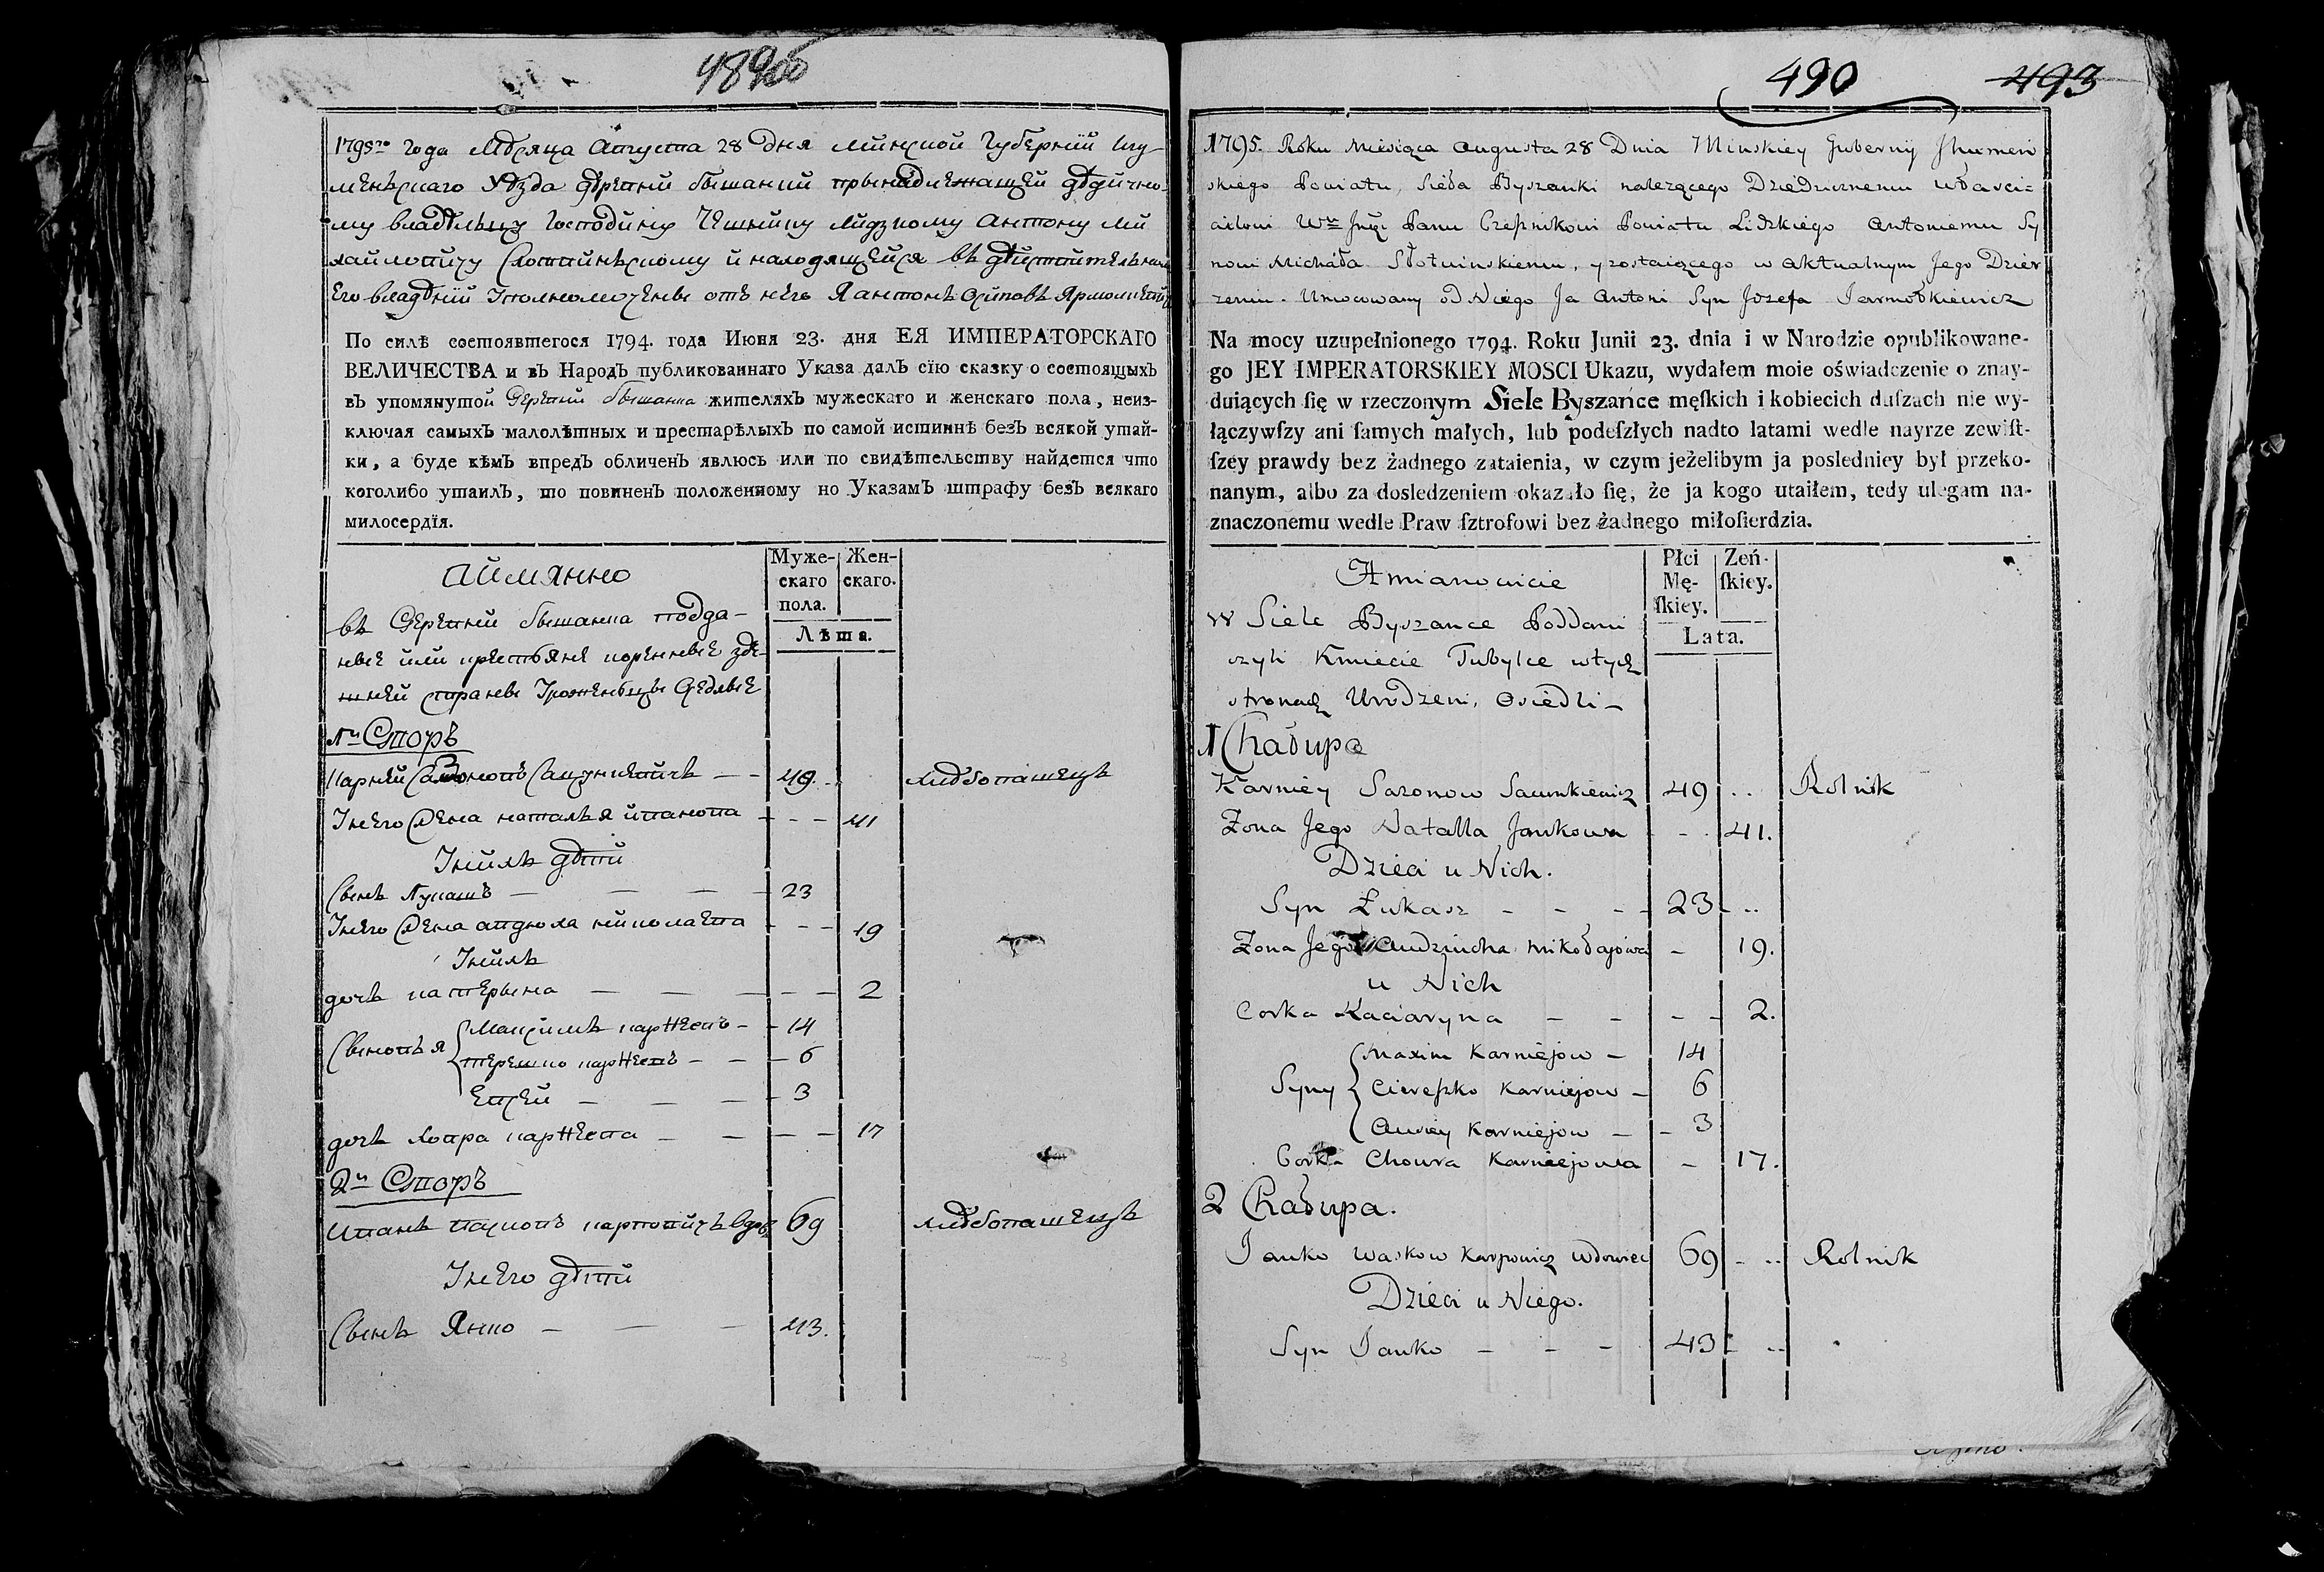 489об
1795го Года Мѣсяца Августа 28 дня минской Губернiи игу-
меньскаго уѣзда дѣревни бышанки прынадлежащей дѣдично-
му владѣльцу Господину Чешнику лидзкому Антону ми
хайловичу Слотвиньскому и находящейся въ дѣйствительном
Его владѣнiи Уполномоченны отъ него Я антонъ Осиповъ Ярмолкевичъ
По силѣ состоявшегося 1794. года Июня 23. дня ЕЯ ИМПЕРАТОРСКАГО
ВЕЛИЧЕСТВА и въ Народъ публикованнаго Указа далъ сїю сказку о состоящыхъ
въ упомянутой Деревни бышанка жителяхъ мужескаго и женскаго пола, неиз-
ключая самыхъ малолѣтных и престарѣлыхъ по самой истиннѣ безъ всякой утай-
ки, а буде кѣмъ впредъ обличенъ явлюсь или по свидѣтельству найдется что
коголибо утаилъ, то повиненъ положенному но Указамъ штрафу безъ всякаго
милосердїя.
Аймянно
Муже-скаго пола.
Жен-скаго.
Лѣта.
въ Деревни бышанка подда-
ные или крестьяне коренные здѣ-
шней страны Урожѣньцы Седлые
1й Сворь
Карней Сазоновъ Савункевичъ — — 49 .. хлѣбопашецъ
Унего Жена наталья иванова - - - 41
Унихъ дѣти
Сынъ Лукашъ — — — 23
Унего Жена авдюха николаева - - - 19
Унихъ
дочь катерына — — — - - 2
Сыновья
Максимъ карнеевъ - - 14
терешко карнеевъ - - - 6
Евсей — — — 3
дочь ховра карнеева — — — - 17
2й Сворь
Иванъ васковъ карповичъ вдов: 69 хлѣбопашецъ
Унего дѣти
Сынъ Янко — — — 43.
490 493
1795. Roku Miesiąca Augusta 28 Dnia Minskiey Gubernij Jhumeń
skiego Powiatu, Sieła Byszanki należącego Dziedzicznemu własci-
cielowi Wmu Panu Czesnikowi Powiatu Lidzkiego Antoniemu Sy
nowi Michała Słotwinskiemu, y zostaiącego w aktualnym Jego Dzier
żeniu. Umocowany od Niego Ja Antoni Syn Jozefa Jarmołkiewicz
Na mocy uzupełnionego 1794. Roku Junii 23. dnia i w Narodzie opublikowane-
go JEY IMPERATORSKIEY MOSCI Ukazu, wydałem moie oświadczenie o znay-
duiących ſię w rzeczonym Siele Byszańce męſkich i kobiecich duſzach nie wy-
łączywſzy ani ſamych małych, lub podeſzłych nadto latami wedle nayrze zewiſt-
ſzey prawdy bez żadnego zataienia, w czym jeżelibym ja posledniey był przeko-
nanym, albo za dosledzeniem okazało ſię, że ja kogo utaiłem, tedy ulegam na-
znaczonemu wedle Praw ſztrofowi bez żadnego miłoſierdzia.
Amianowicie
Płci Mę-ſkiey.
Zeń-ſkiey.
Lata.
W Siele Byszance Poddani
czyli Kmiecie Tubylce wtych
stronach Urodzeni, Osiedli —
1 Chałupa
Karniey Sazonow Saunkiewicz 49 .. Rolnik
Zona Jego Natalla Jankowa - - . 41.
Dzieci u Nich.
Syn Łukasz - - - - 23 - ..
Zona Jego Audziucha Mikołajówa - 19.
u Nich
Corka Kaciaryna — - - - 2.
Syny
Maxim Karniejow — 14
Ciereſzko Karniejow — 6
Ausiey Karniejow — - 3
Corka Chowra Karniejowa - 17.
2 Chałupa.
Janko Waskow Karpowicz Wdowiec 69 - .. Rolnik
Dzieci u Niego.
Syn Janko - - - 43 - ..